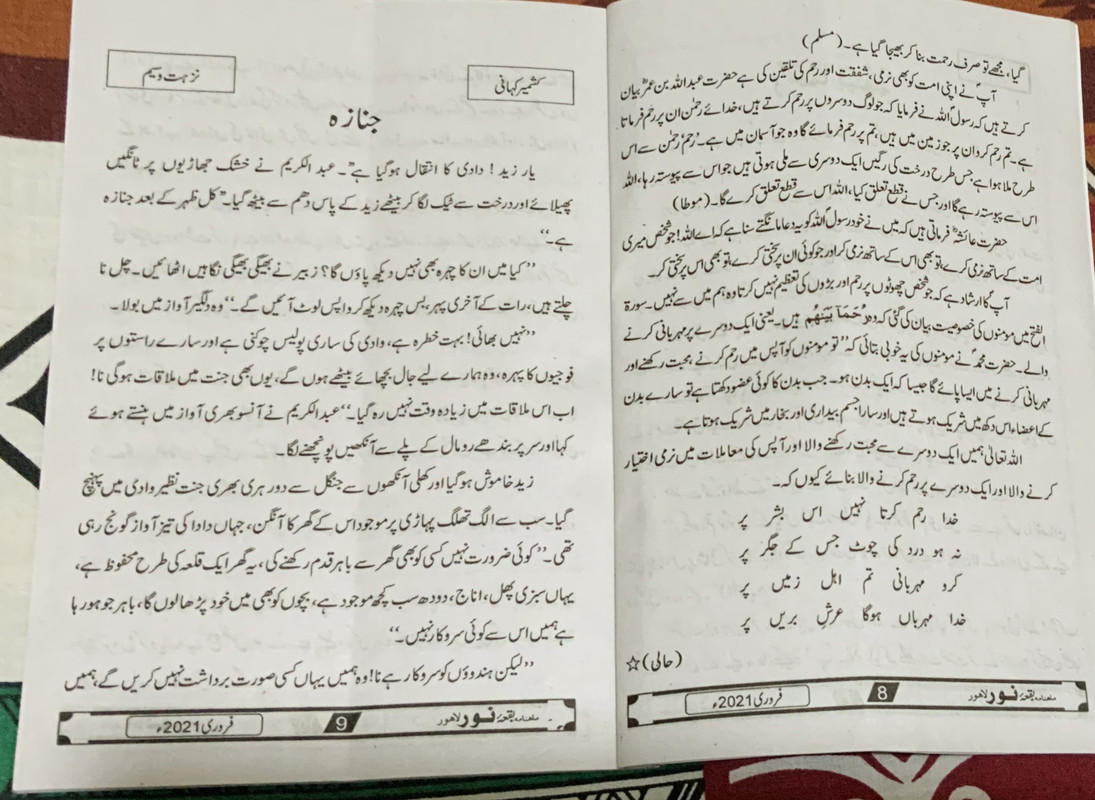 گیا، مجھے تو صرف رحمت بنا کر بھیجا گیا ہے۔ (مسلم)
آپؐ نے اپنی امت کو بھی نرمی، شفقت اور رحم کی تلقین کی ہے حضرت عبداللہ بن عمرؓ بیان
کرتے ہیں کہ رسولؐ اللہ نے فرمایا کہ جو لوگ دوسروں پر رحم کرتے ہیں، خدائے رحمٰن ان پر رحم فرماتا
ہے۔ تم رحم کرو ان پر جو زمین میں ہیں، تم پر رحم فرمائے گا وہ جو آسمان میں ہے۔ رحم، رحمٰن سے اس
طرح ملا ہوا ہے جس طرح درخت کی رگیں ایک دوسری سے ملی ہوتی ہیں جو اس سے پیوستہ رہا، اللہ
اس سے پیوستہ رہے گا اور جس نے قطع تعلق کیا، اللہ اس سے قطع تعلق کرے گا۔ (موطا)
حضرت عائشہؓ فرماتی ہیں کہ میں نے خود رسولؐ اللہ کو یہ دعا مانگتے سنا ہے کہ اے اللہ! جو شخص میری
امت کے ساتھ نرمی کرے، تو بھی اس کے ساتھ نرمی کر اور جو کوئی ان پر سختی کرے، تو بھی اس پر سختی کر۔
آپؐ کا ارشاد ہے کہ جو شخص چھوٹوں پر رحم اور بڑوں کی تعظیم نہیں کرتا وہ ہم میں سے نہیں۔ سورۃ
الفتح میں مومنوں کی خصوصیت بیان کی گئی کہ وہ رُحَمَآءُ بَیْنَھُم ہیں۔ یعنی ایک دوسرے پر مہربانی کرنے
والے۔ حضرت محمدؐ نے مومنوں کی یہ خوبی بتائی کہ ”تو مومنوں کو آپس میں رحم کرنے، محبت رکھنے اور
مہربانی کرنے میں ایسا پائے گا جیسا کہ ایک بدن ہو۔ جب بدن کا کوئی عضو دکھتا ہے تو سارے بدن
کے اعضاء اس دکھ میں شریک ہوتے ہیں اور سارا جسم بیداری اور بخار میں شریک ہوتا ہے۔
اللہ تعالیٰ ہمیں ایک دوسرے سے محبت رکھنے والا اور آپس کی معاملات میں نرمی اختیار
کرنے والا اور ایک دوسرے پر رحم کرنے والا بنائے کیوں کہ۔
خدا رحم کرتا نہیں اس بشر پر
نہ ہو درد کی چوٹ جس کے جگر پر
کرو مہربانی تم اہل زمیں پر
خدا مہرباں ہوگا عرشِ بریں پر
(حالی) ☆
ماہنامہ بقعۂ نور لاہور 8 فروری 2021ء
کشمیر کہانی
نزہت وسیم
جنازہ
یار زید! دادی کا انتقال ہوگیا ہے“۔ عبدالکریم نے خشک جھاڑیوں پر ٹانگیں
پھیلائے اور درخت سے ٹیک لگا کر بیٹھے زید کے پاس دھم سے بیٹھ گیا۔ ”کل ظہر کے بعد جنازہ
ہے۔“
”کیا میں ان کا چہرہ بھی نہیں دیکھ پاؤں گا؟ زبیر نے بھیگی بھیگی نگاہیں اٹھائیں۔ چل نا
چلتے ہیں، رات کے آخری پہر، بس چہرہ دیکھ کر واپس لوٹ آئیں گے۔“ وہ دلگیر آواز میں بولا۔
”نہیں بھائی! بہت خطرہ ہے، وادی کی ساری پولیس چوکنی ہے اور سارے راستوں پر
فوجیوں کا پہرہ، وہ ہمارے لیے جال بچھائے بیٹھے ہوں گے، یوں بھی جنت میں ملاقات ہوگی نا!
اب اس ملاقات میں زیادہ وقت نہیں رہ گیا۔“ عبدالکریم نے آنسو بھری آواز میں ہنستے ہوئے
کہا اور سر پر بندھے رومال کے پلے سے آنکھیں پونچھنے لگا۔
زید خاموش ہوگیا اور کھلی آنکھوں سے جنگل سے دور ہری بھری جنت نظیر وادی میں پہنچ
گیا۔ سب سے الگ تھلگ پہاڑی پر موجود اس کے گھر کا آنگن، جہاں دادا کی تیز آواز گونج رہی
تھی۔ ”کوئی ضرورت نہیں کسی کو بھی گھر سے باہر قدم رکھنے کی، یہ گھر ایک قلعہ کی طرح محفوظ ہے،
یہاں سبزی پھل، اناج، دودھ سب کچھ موجود ہے، بچوں کو بھی میں خود پڑھا لوں گا، باہر جو ہو رہا
ہے ہمیں اس سے کوئی سروکار نہیں۔“
”لیکن ہندوؤں کو سروکار ہے نا! وہ ہمیں یہاں کسی صورت برداشت نہیں کریں گے، ہمیں
ماہنامہ بقعۂ نور لاہور 9 فروری 2021ء